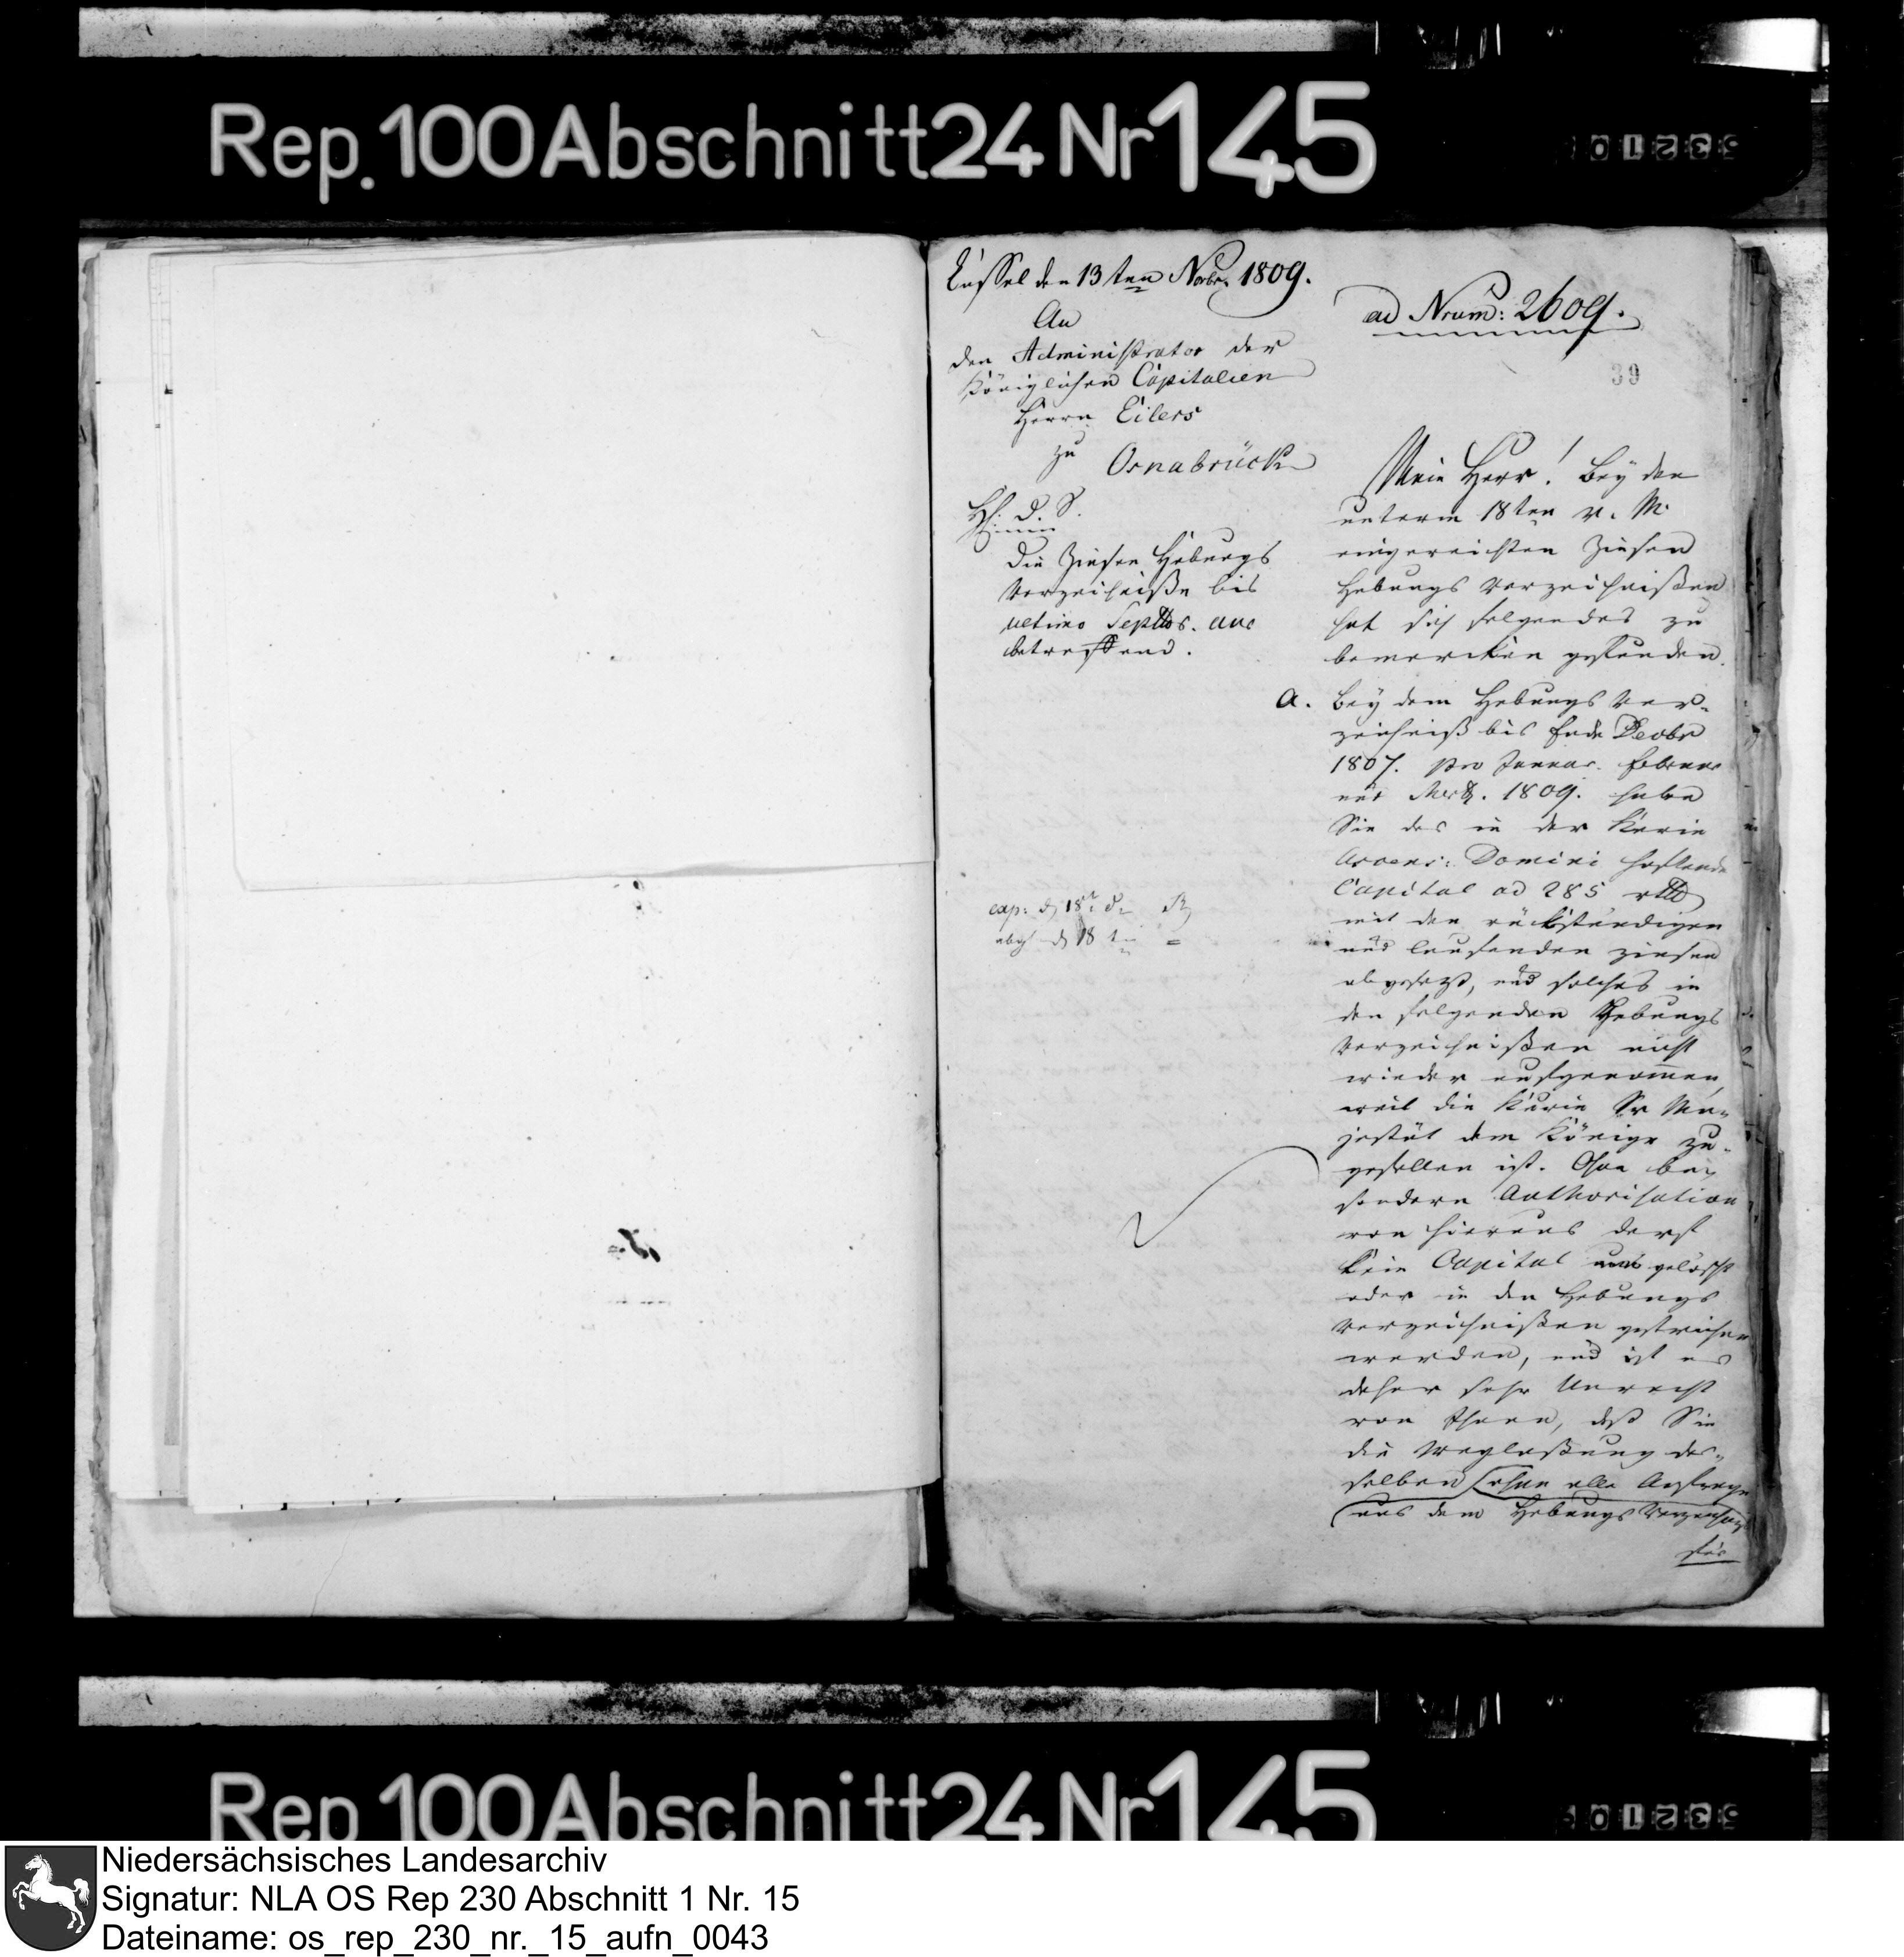 Rep. 100 Abschnitt 24 Nr 145
Cassel den 13ten Novbr. 1809.
An
den Administrator der
Königlichen Capitalien
Herrn Eilers
zu
Osnabrück
D. S.
die Zinsen Hebungs
Verzeichniße bis
ultimo Septbr. anc
betreffend.
exp: d 18t
abgs d 18
ad Num: 2609.
39
Mein Herr! Bey den
unterm 18ten v. M.
eingereichten Zinsen
Hebungs Verzeichnißen
hat sich folgendes zu
bemercken gefunden.
a. Bey dem Hebungs Ver-
zeichniß bis Ende Decbr
1807. pro Januar. Februar
und Merz. 1809. haben
Sie das in der Kurie
Ascens: Domini haftende
Capital ad 285 rthl
mit den rückständigen
und laufenden Zinsen
abgesezt, und solches in
den folgenden Hebungs
Verzeichnißen nicht
wieder aufgenommen,
weil die Kurie Sr Ma-
jestät dem Könige zu-
gefallen ist. Ohne be-
sondere Authorisation
von hieraus darf
kein Capital ausgelöscht
oder in den Hebungs
Verzeichnißen gestrichen
werden, und ist es
daher sehr Unrecht
von Ihnen, daß Sie
die Weglaßung des-
selben (ohne alle Anfrage
aus dem Hebungs Verzeichniß
für
Rep 100 Abschnitt 24 Nr 145
Niedersächsisches Landesarchiv
Signatur: NLA OS Rep 230 Abschnitt 1 Nr. 15
Dateiname: os_rep_230_nr._15_aufn_0043